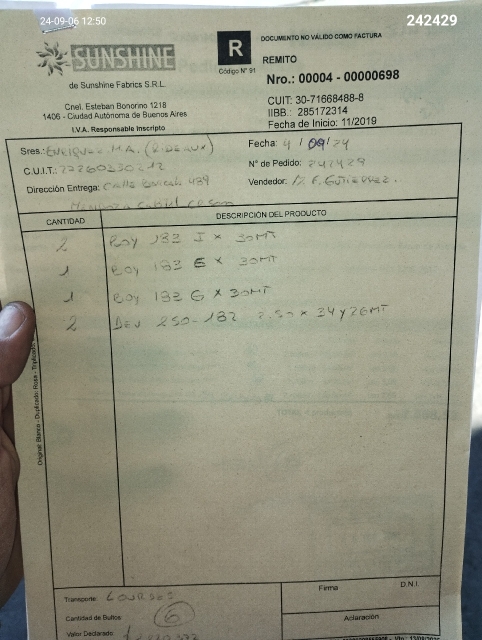 24-09-06 12:50
242429
SUNSHINE
de Sunshine Fabrics S.R.L.
Cnel. Esteban Bonorino 1218
1406 - Ciudad Autónoma de Buenos Aires
I.V.A. Responsable Inscripto
R
Código Nº 91
DOCUMENTO NO VÁLIDO COMO FACTURA
REMITO
Nro.: 00004 - 00000698
CUIT: 30-71668488-8
IIBB.: 285172314
Fecha de Inicio: 11/2019
Sres.: ENRIQUEZ M.A. (RIDEAUX)
C.U.I.T.:
Dirección Entrega: Calle 439
Fecha: 4/09/24
N° de Pedido: 242429
Vendedor: Gutierrez.
CANTIDAD
DESCRIPCIÓN DEL PRODUCTO
2 Roy 183 I x 30MT
1 Roy 183 E x 30MT
1 Roy 183 G x 30MT
2 250-182 2.50 x 34 y 26MT
Original: Blanco - Duplicado: Rosa - Triplicado:
Transporte: LOURDES
Cantidad de Bultos: 6
Valor Declarado
Firma
D.N.I.
Aclaración